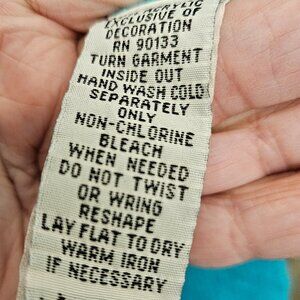 ACRYLIC
EXCLUSIVE OF
DECORATION
RN 90133
TURN GARMENT
INSIDE OUT
HAND WASH COLD
SEPARATELY
ONLY
NON-CHLORINE
BLEACH
WHEN NEEDED
DO NOT TWIST
OR WRING
RESHAPE
LAY FLAT TO DRY
WARM IRON
IF NECESSARY